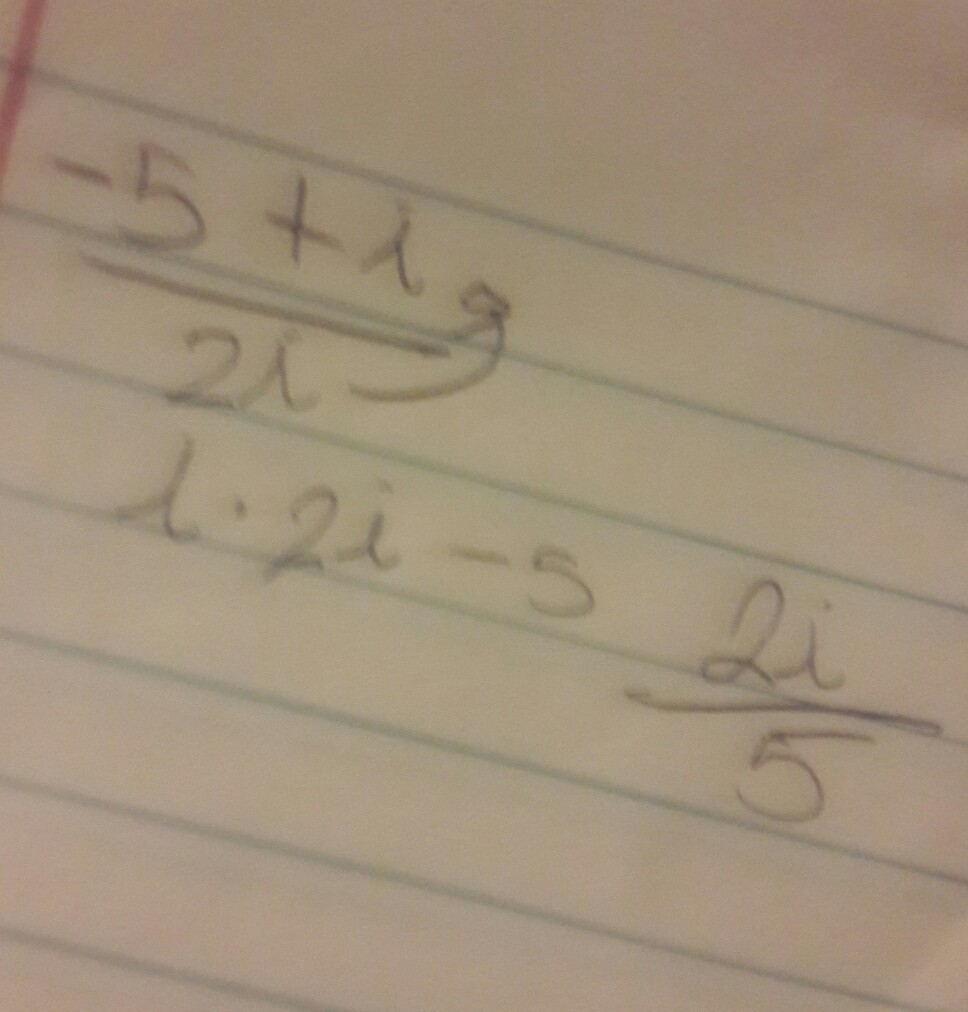 -5 + i
2i
i · 2i - 5
2i
5